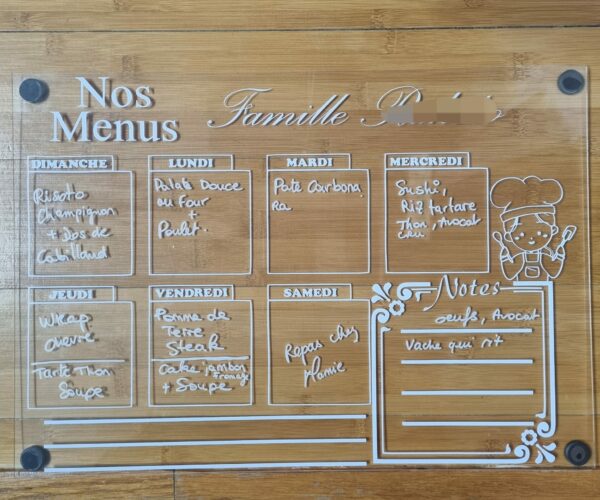 Nos
Menus
Famille
DIMANCHE
Risoto
Champignon
+ Dos de
Cabillaud
LUNDI
Patate Douce
au four
+
Poulet.
MARDI
Pate Carbona
ra
MERCREDI
Sushi,
Riz tartare
Thon, Avocat
cru
JEUDI
Wrap
chèvre
Tarte Thon
Soupe
VENDREDI
Pomme de
Terre
Steak
Cake jambon
fromage
+ Soupe
SAMEDI
Repas chez
Mamie
Notes
oeufs, Avocat
Vache qui rit